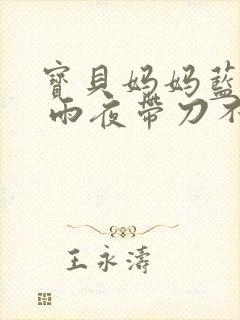 寶貝媽媽藍
雨夜帶刀不
王永濤